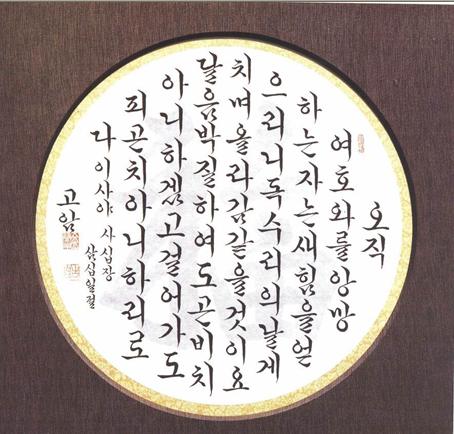 오직
여호와를앙망
하는자는새힘을얻
으리니독수리의날게
치며올라감같을것이요
달음박질하여도곤비치
아니하겠고걸어가도
피곤치아니하리로
다 이사야 사십장
삼십일절
고암